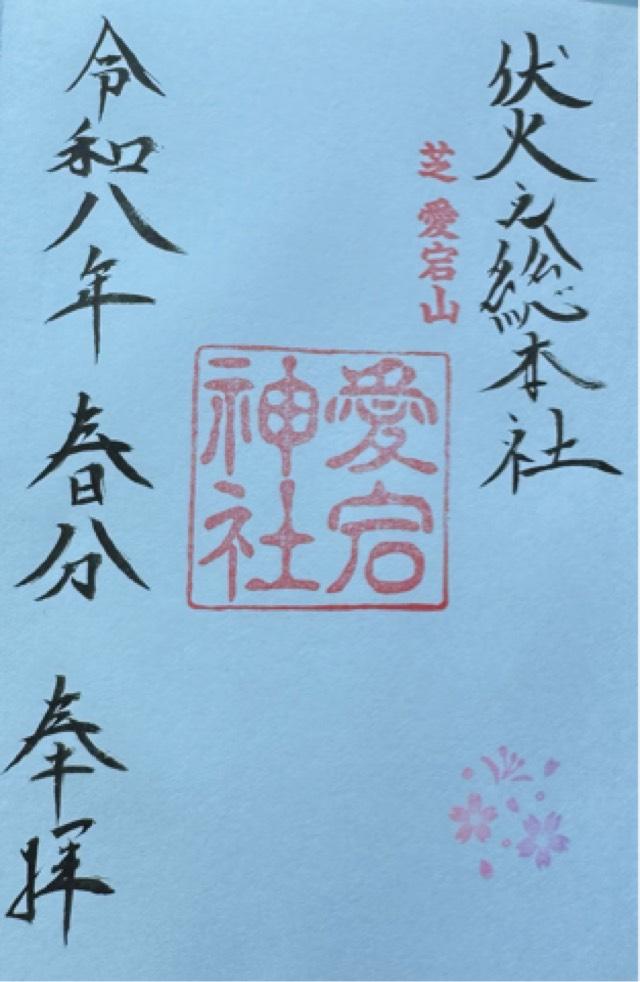 伏火之総本社
芝 愛宕山
愛宕
神社
令和八年 春分 奉拝